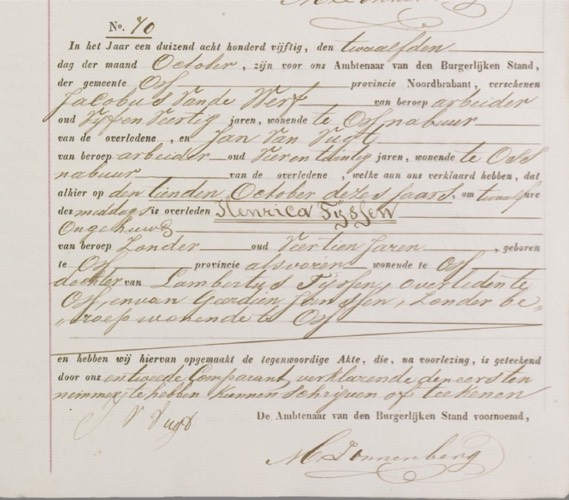 No. 70
In het Jaar een duizend acht honderd vijftig, den twaalfden
dag der maand October, zijn voor ons Ambtenaar van den Burgerlijken Stand,
der gemeente Oss provincie Noordbrabant, verschenen
Jacobus Van de Werf van beroep arbeider
oud Vyf en Veertig jaren, wonende te Oss nabuur
van de overledene, en Jan Van Vugt
van beroep arbeider oud Vier en twintig jaren, wonende te Oss
nabuur van de overledene, welke aan ons verklaard hebben, dat
alhier op den tienden October dezes Jaars, om twaalf ure
des middags is overleden Henrica Tyssen
Ongehuwd
van beroep Zonder oud Veertien Jaren, geboren
te Oss provincie als voren wonende te Oss
dochter van Lambertus Tyssen, overleden te
Oss, en van Geordien Janssen, Zonder be-
roep wonende te Oss
en hebben wij hiervan opgemaakt de tegenwoordige Akte, die, na voorlezing, is geteekend
door ons en tweede Comparant, verklarende den eersten
nimmer te hebben kunnen schrijven of teekenen
De Ambtenaar van den Burgerlijken Stand voornoemd,
J V Vugt